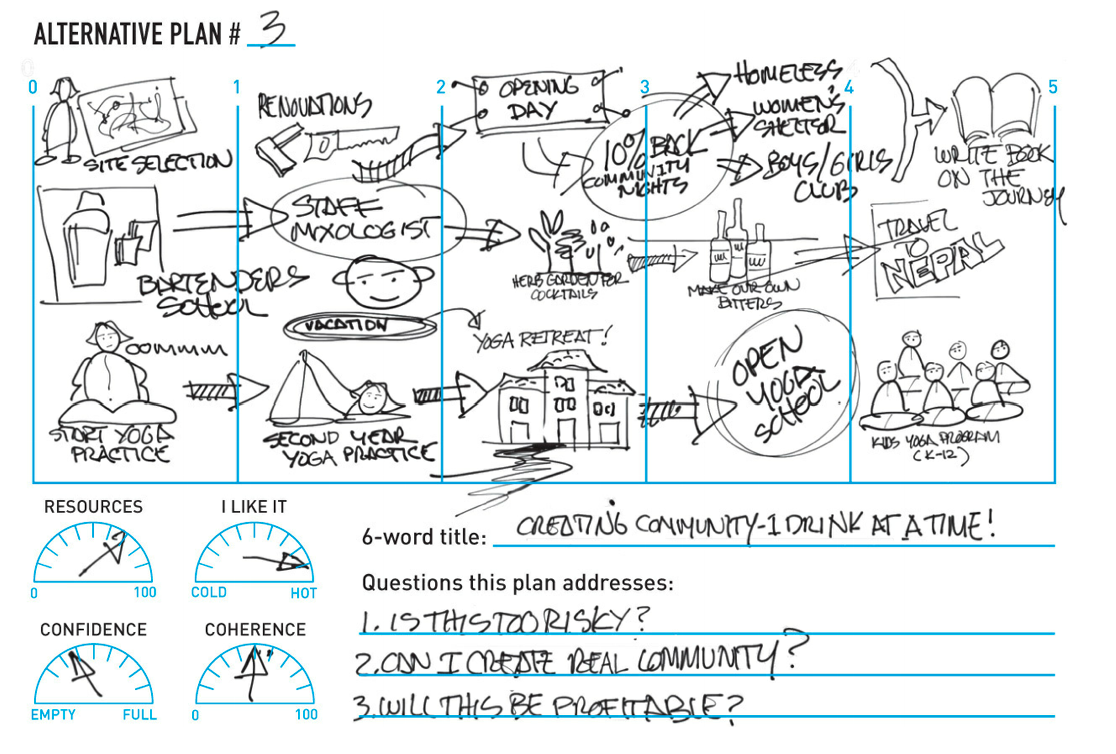 ALTERNATIVE PLAN # 3
0 1 2 3 4 5
SITE SELECTION
RENOVATIONS
OPENING
DAY
10% BACK
COMMUNITY
NIGHTS
HOMELESS
WOMEN'S
SHELTER
BOYS/GIRLS
CLUB
WRITE BOOK
ON THE
JOURNEY
BARTENDERS
SCHOOL
STAFF
MIXOLOGIST
HERB GARDEN FOR
COCKTAILS
MAKE OUR OWN
BITTERS
TRAVEL
TO
NEPAL
VACATION
OOMMM
START YOGA
PRACTICE
SECOND YEAR
YOGA PRACTICE
YOGA RETREAT!
OPEN
YOGA
SCHOOL
KIDS YOGA PROGRAM
(K-12)
RESOURCES
0 100
I LIKE IT
COLD HOT
CONFIDENCE
EMPTY FULL
COHERENCE
0 100
6-word title: CREATING COMMUNITY-1 DRINK AT A TIME!
Questions this plan addresses:
1. IS THIS TOO RISKY?
2. CAN I CREATE REAL COMMUNITY?
3. WILL THIS BE PROFITABLE?